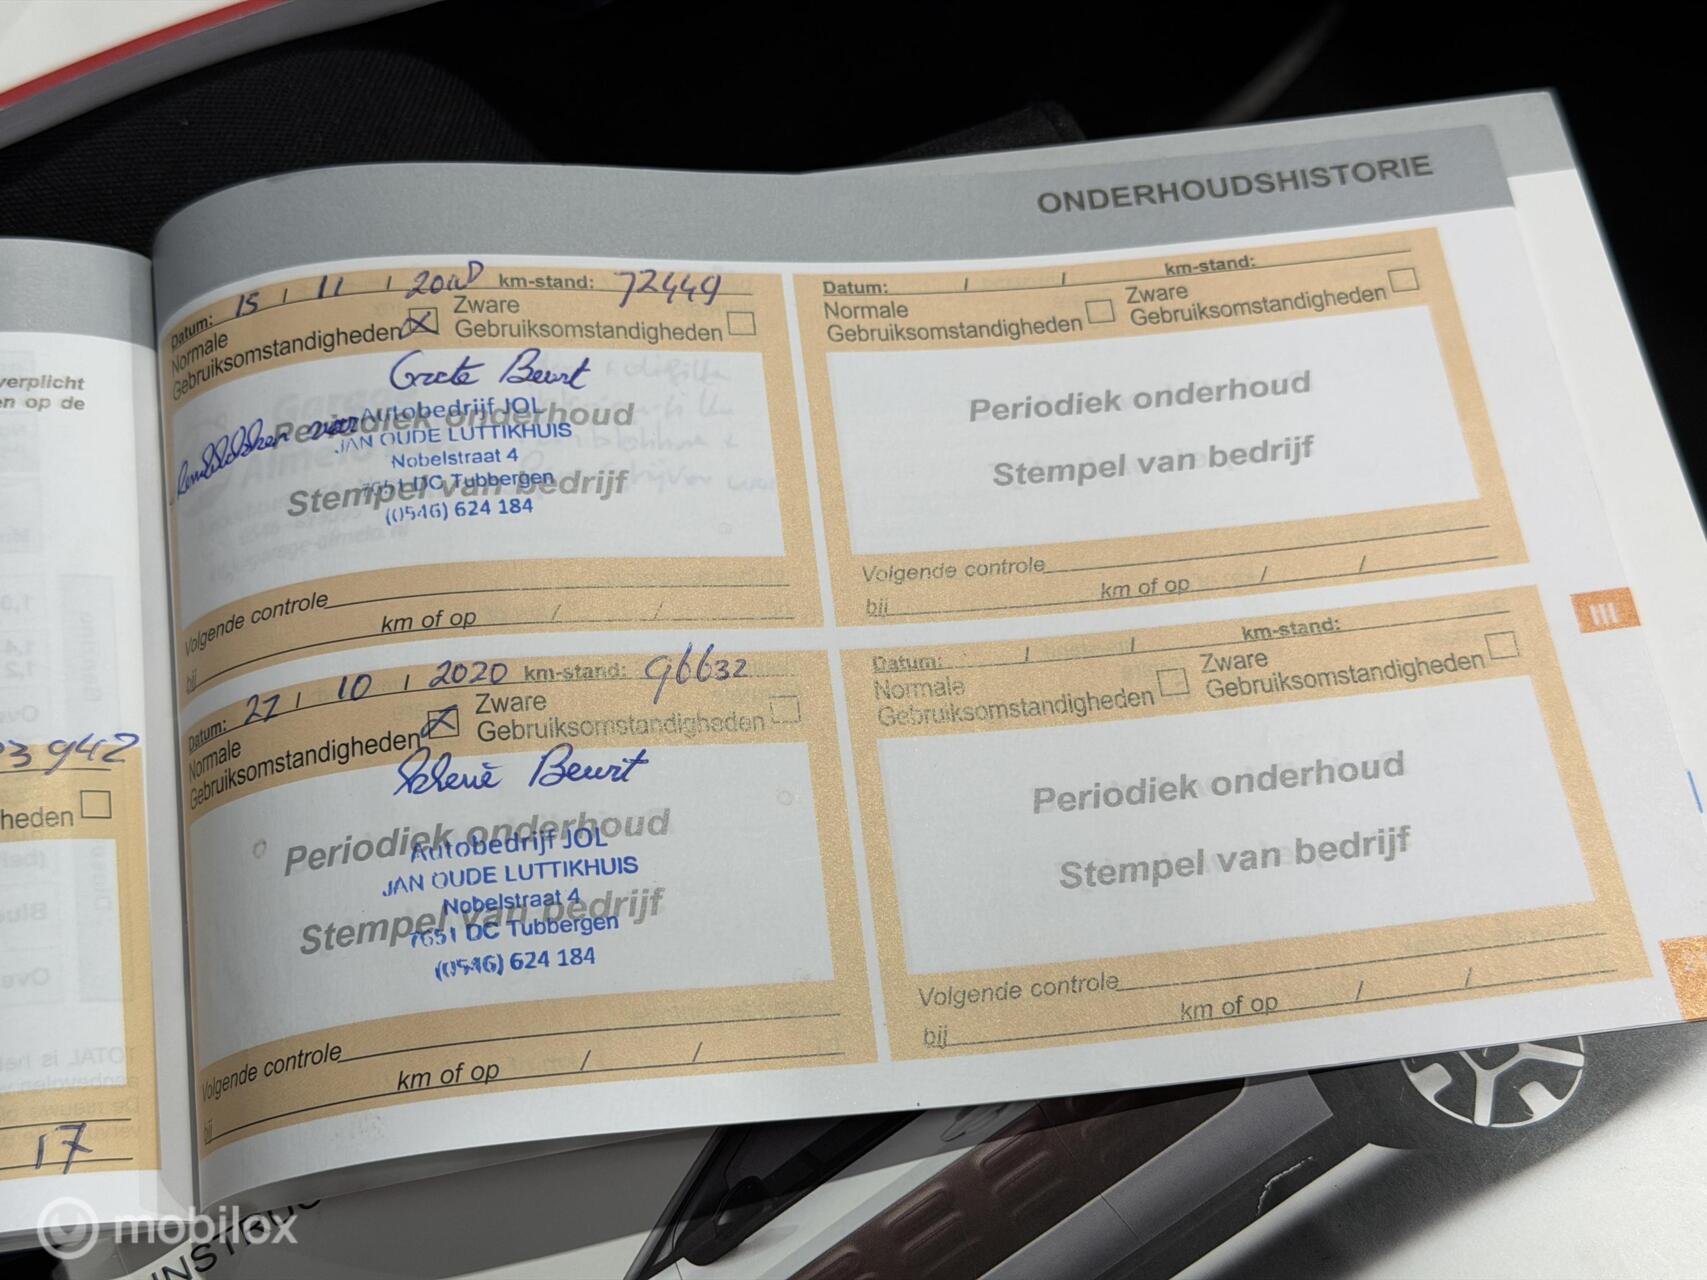 ONDERHOUDSHISTORIE
verplicht
en op de
942
heden
17
Datum: 15 / 11 / km-stand: 72449
Normale
Gebruiksomstandigheden
Zware
Gebruiksomstandigheden
Grote Beurt
Remblokken voor
Autobedrijf JOL
Periodiek onderhoud
JAN OUDE LUTTIKHUIS
Nobelstraat 4
7651 DC Tubbergen
Stempel van bedrijf
(0546) 624 184
Volgende controle
bij km of op / /
Datum: 27 / 10 / 2020 km-stand: 96632
Normale
Gebruiksomstandigheden
Zware
Gebruiksomstandigheden
Kleine Beurt
Periodiek onderhoud
Autobedrijf JOL
JAN OUDE LUTTIKHUIS
Nobelstraat 4
Stempel van bedrijf
7651 DC Tubbergen
(0546) 624 184
Volgende controle
bij km of op / /
Datum: / / km-stand:
Normale
Gebruiksomstandigheden
Zware
Gebruiksomstandigheden
Periodiek onderhoud
Stempel van bedrijf
Volgende controle
bij km of op / /
Datum: / / km-stand:
Normale
Gebruiksomstandigheden
Zware
Gebruiksomstandigheden
Periodiek onderhoud
Stempel van bedrijf
Volgende controle
bij km of op / /
III
mobilox